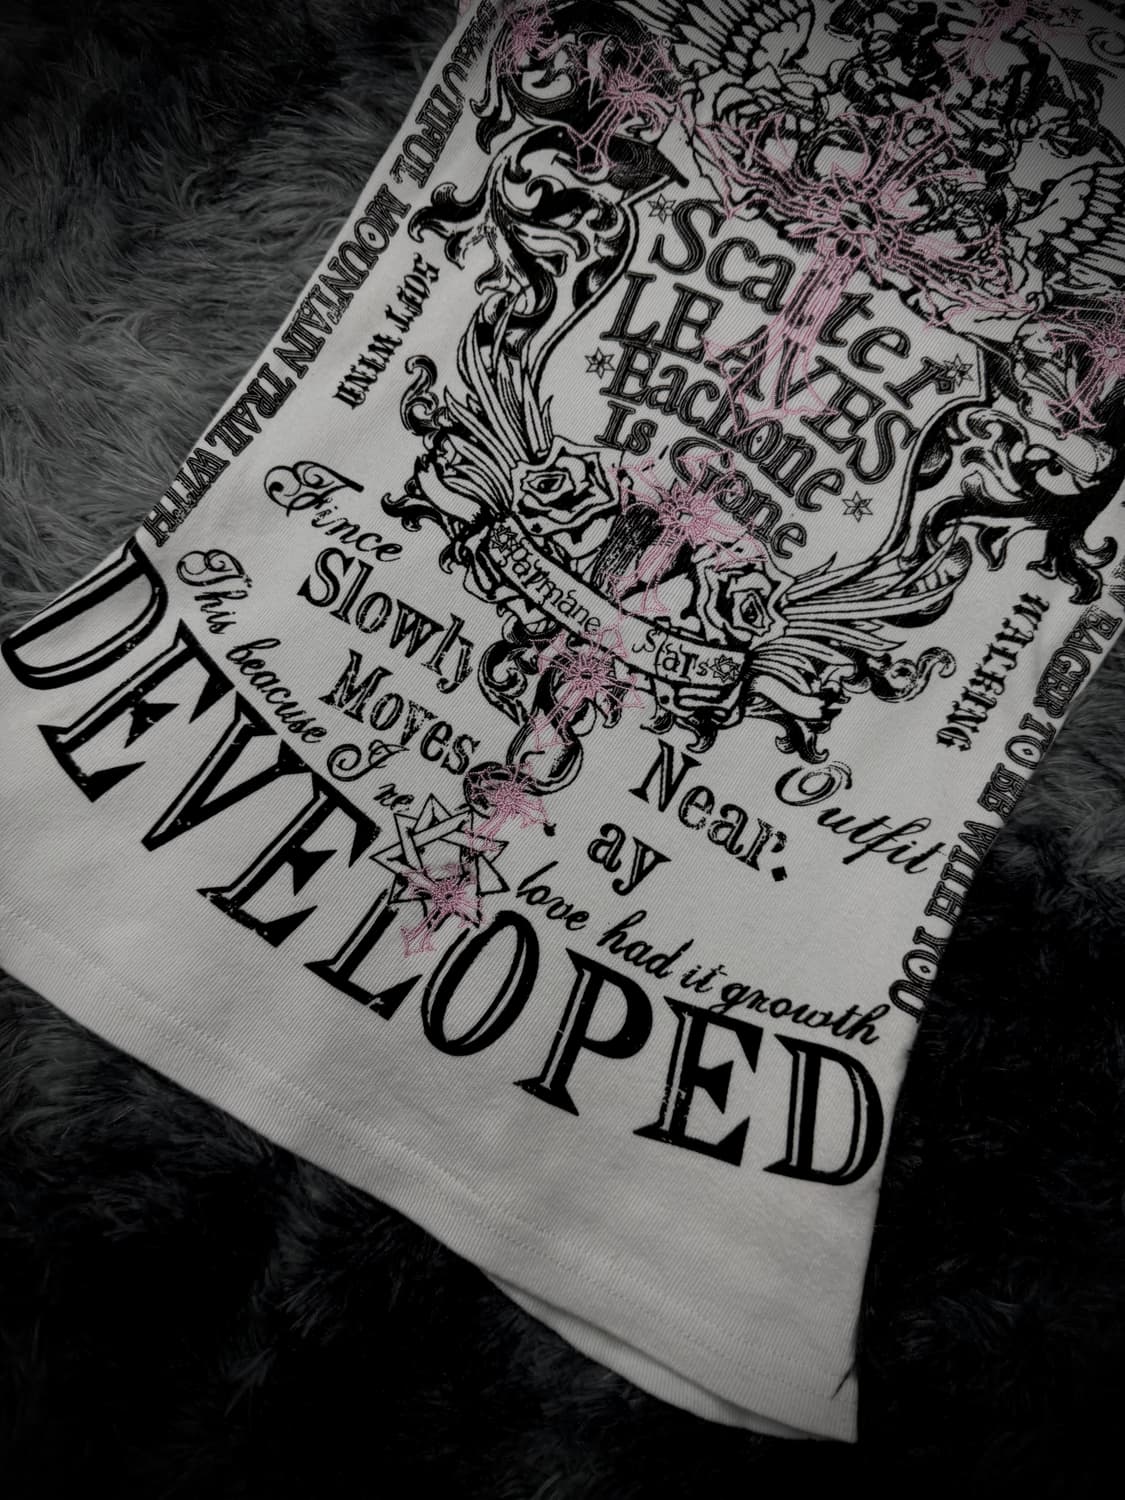 Scatter
LEAVES
Eachone
Is Gone
MOUNTAIN TRAIL WITH
SOFT WIND
Fince
Slowly
Moves
Near.
ay
Outfit
Stars
WALKING
EAGER TO BE WITH YOU
This beacuse I ne
love had it growth
DEVELOPED